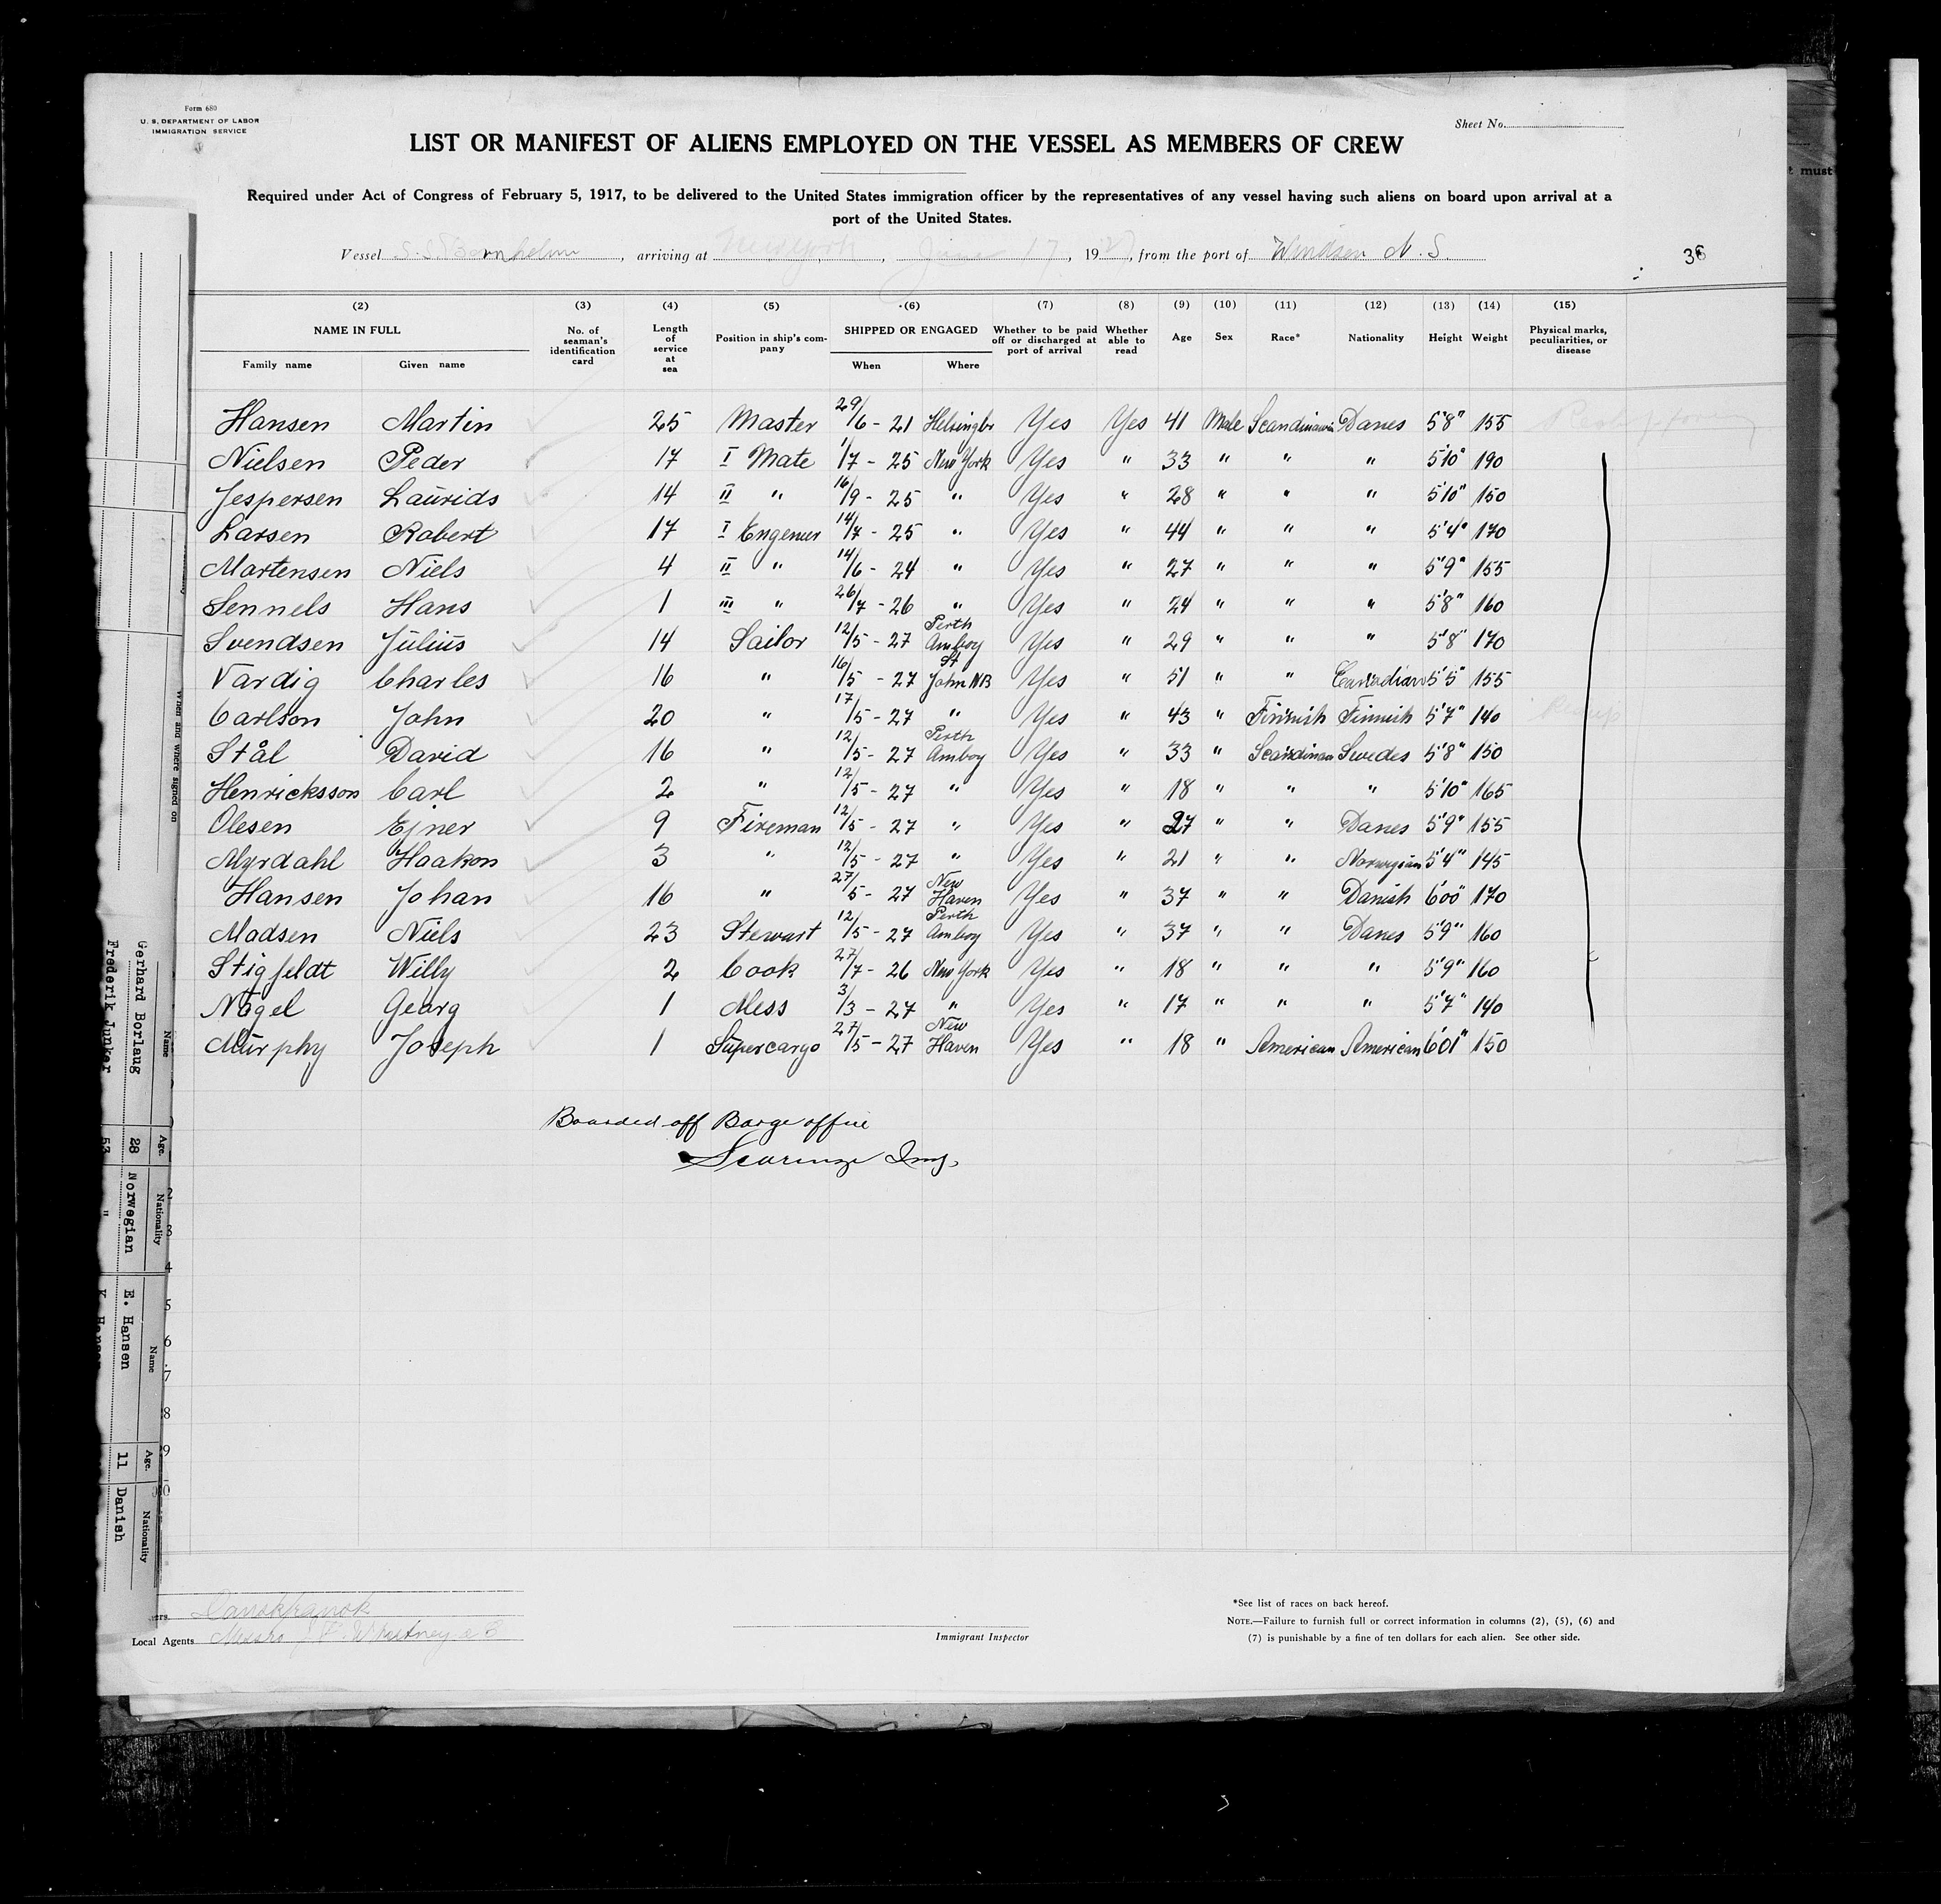 Form 680
U. S. DEPARTMENT OF LABOR
IMMIGRATION SERVICE
Sheet No.
LIST OR MANIFEST OF ALIENS EMPLOYED ON THE VESSEL AS MEMBERS OF CREW
Required under Act of Congress of February 5, 1917, to be delivered to the United States immigration officer by the representatives of any vessel having such aliens on board upon arrival at a
port of the United States.
Vessel S.S. Bornholm, arriving at New York, June 17, 1927, from the port of Windsor N. S.
36
(2) (3) (4) (5) (6) (7) (8) (9) (10) (11) (12) (13) (14) (15)
NAME IN FULL Family name Given name No. of seaman's identification card Length of service at sea Position in ship's company SHIPPED OR ENGAGED When Where Whether to be paid off or discharged at port of arrival Whether able to read Age Sex Race* Nationality Height Weight Physical marks, peculiarities, or disease
Hansen Martin 25 Master 29/6 - 21 Helsingbr Yes Yes 41 Male Scandinavia Danes 5'8" 155
Nielsen Peder 17 I Mate 1/7 - 25 New York Yes " 33 " " " 5'10" 190
Jespersen Laurids 14 II " 16/9 - 25 " Yes " 28 " " " 5'10" 150
Larsen Robert 17 I Engeneer 14/7 - 25 " Yes " 44 " " " 5'4" 170
Martensen Niels 4 II " 14/6 - 24 " Yes " 27 " " " 5'9" 155
Sennels Hans 1 III " 26/7 - 26 " Yes " 24 " " " 5'8" 160
Svendsen Julius 14 Sailor 12/5 - 27 Perth Amboy Yes " 29 " " " 5'8" 170
Vardig Charles 16 " 16/5 - 27 St John NB Yes " 51 " " Canadian 5'5" 155
Carlson John 20 " 17/5 - 27 " Yes " 43 " Finnish Finnish 5'7" 140
Stål David 16 " 12/5 - 27 Perth Amboy Yes " 33 " Scandinav Swedes 5'8" 150
Henricksson Carl 2 " 12/5 - 27 " Yes " 18 " " " 5'10" 165
Olesen Ejner 9 Fireman 12/5 - 27 " Yes " 27 " " Danes 5'9" 155
Myrdahl Haakon 3 " 12/5 - 27 " Yes " 21 " " Norwegian 5'4" 145
Hansen Johan 16 " 27/5 - 27 New Haven Yes " 37 " " Danish 6'00" 170
Madsen Niels 23 Stewart 12/5 - 27 Perth Amboy Yes " 37 " " Danes 5'9" 160
Stigfeldt Willy 2 Cook 27/7 - 26 New York Yes " 18 " " " 5'9" 160
Nögel Georg 1 Mess 3/3 - 27 " Yes " 17 " " " 5'7" 140
Murphy Joseph 1 Supercargo 27/5 - 27 New Haven Yes " 18 " American American 6'01" 150
Boarded off Barge office
Local Agents Messrs J. F. Whitney & Co
Immigrant Inspector
*See list of races on back hereof.
NOTE.—Failure to furnish full or correct information in columns (2), (5), (6) and
(7) is punishable by a fine of ten dollars for each alien. See other side.
When and where signed on
Name Age. Nationality Name Age. Nationality
Gerhard Borlaug 28 Norwegian E. Hansen 11 Danish
Frederik Junker 53 "
t must